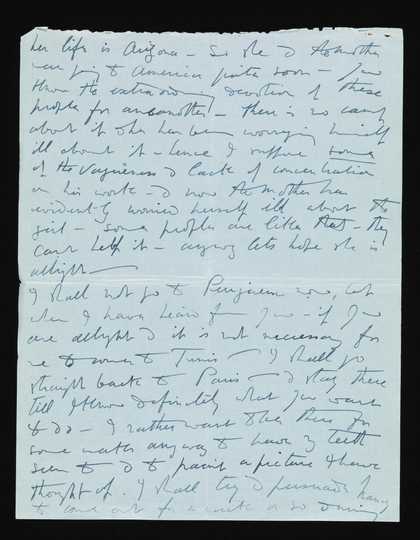 her life is Arizona - so she & the mother
are going to America quite soon - You
know the extraordinary devotion of these
people for one another - there is no doubt
about it she has been worrying himself
ill about it - hence I suppose some
of the vagueness & lack of concentration
on his work - & now the mother has
evidently worried herself ill about the
girl - some people are like that - they
can't help it - anyway lets hope she is
allright -
I shall not go to now, but
when I have heard from you - if you
are allright & it is not necessary for
me to come to Tunis - I shall go
straight back to Paris - & stay there
till I know definitely what you want
to do - I rather want to be there for
some weeks anyway to have my teeth
seen to & to paint a picture I have
thought of. I shall try & persuade
to come out for a week or so